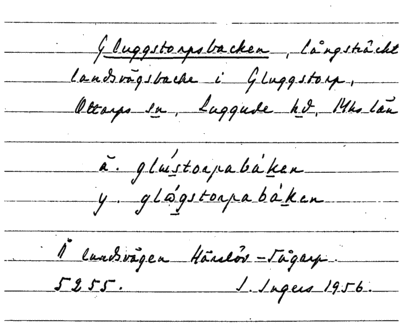 Gluggstorpsbacken, långsträckt
landsvägsbacke i Gluggstorp,
Ottarps sn, Luggude hd, Mhs län
ä. glústorpabáken
y. glǿgstorpabáken
Å landsvägen Härslöv - Tågarp.
5255. I. Ingers 1956.